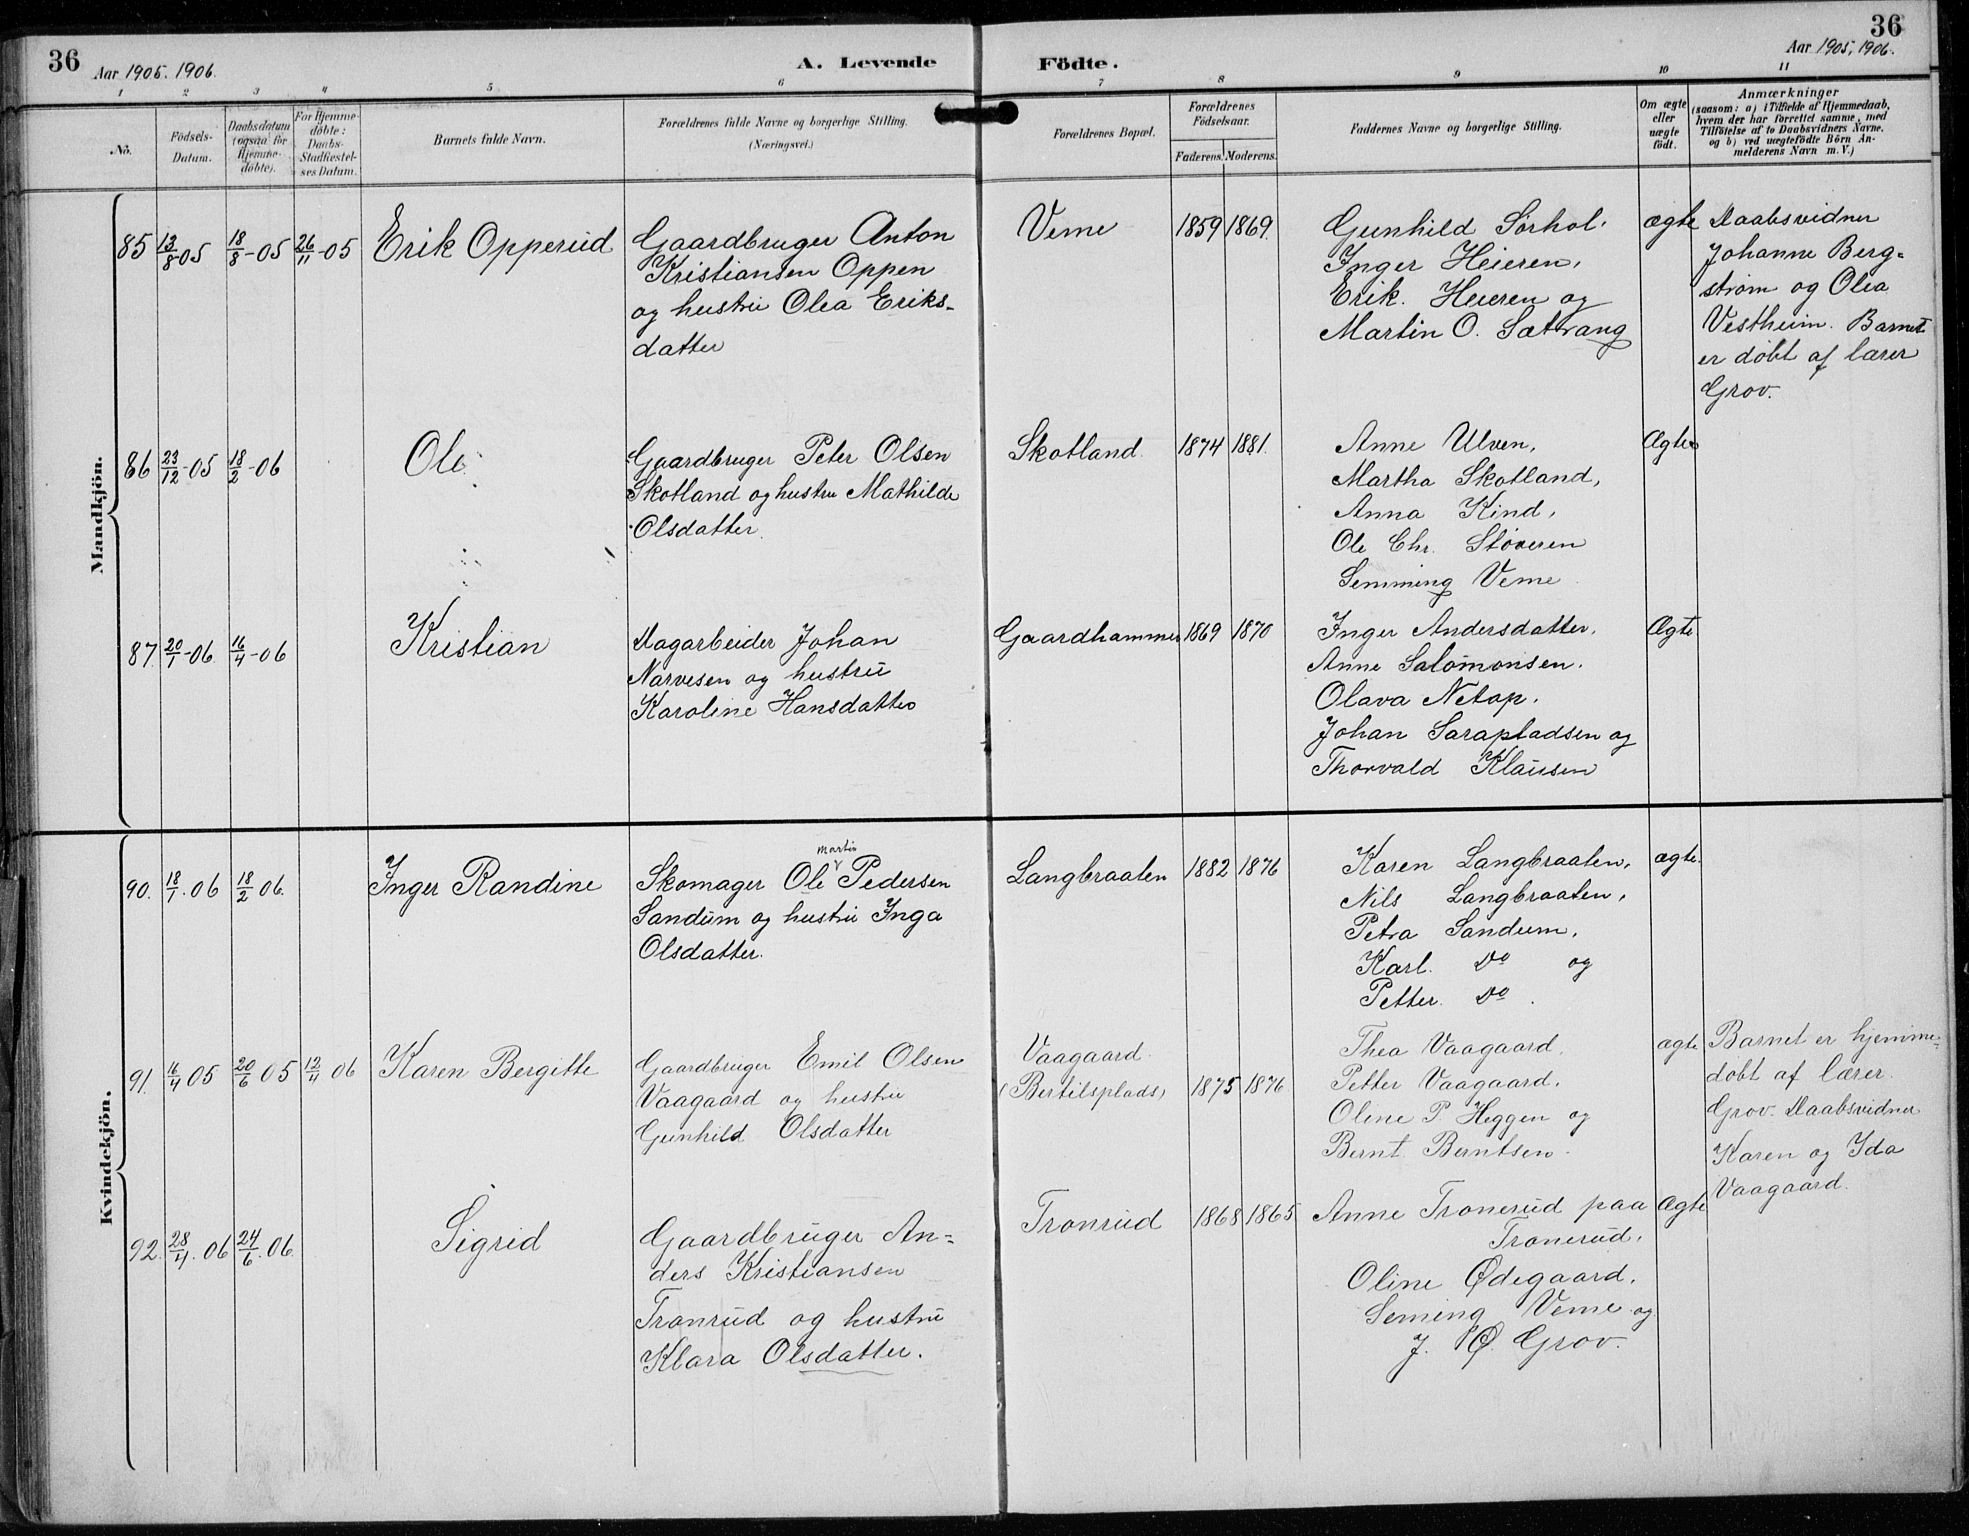 36
Aar 1905. 1906.
A. Levende
Födte.
36
Aar 1905, 1906.
1 2 3 4 5 6 7 8 9 10 11
No.
Födsels-
Datum.
Daabsdatum
(ogsaa for
Hjemme-
döbte).
For Hjemme-
döbte:
Daabs-
Stadfæstel-
ses Datum.
Barnets fulde Navn.
Forældrenes fulde Navne og borgerlige Stilling.
(Næringsvei.)
Forældrenes Bopæl.
Forældrenes
Födselsaar.
Faderens. Moderens.
Faddernes Navne og borgerlige Stilling.
Om ægte
eller
uægte
födt.
Anmærkninger
(saasom: a) i Tilfælde af Hjemmedaab,
hvem der har forrettet samme, med
Tilföielse af to Daabsvidners Navne,
og b) ved uægtefödte Börn An-
melderens Navn m. V.)
Mandkjön.
85 13/8-05 18/8-05 26/11-05 Erik Opperud
Gaardbruger Anton
Kristiansen Oppen
og hustru Olea Eriks-
datter
Veme 1859 1869.
Gunhild Sørhol.
Inger Heieren,
Erik. Heieren og
Martin O. Sætrang
ægte
Daabsvidner
Johanne Berg-
strøm og Olea
Vestheim. Barnet
er døbt af lærer
Grov.
86 23/12-05 18/2-06 Ole
Gaardbruger Peter Olsen
Skotland og hustru Mathilde
Olsdatter.
Skotland. 1874 1881.
Anne Ulven,
Martha Skotland,
Anna Kind,
Ole Chr. Støveren
Semming Veme
Ægte
87 20/1-06 16/4-06 Kristian
Dagarbeider Johan
Narvesen og hustru
Karoline Hansdatter
Gaardhammer 1869 1870
Inger Andersdatter.
Anne Salomonsen.
Olava Netop.
Johan Sarapladsen og
Thorvald Klausen
Ægte
Kvindekjön.
90. 18/1. 06 18/2 06. Inger Randine
martin
Skomager Ole Pedersen
Sandum og hustru Inga
Olsdatter.
Langbraaten 1882 1876
Karen Langbraaten,
Nils Langbraaten,
Petra Sandum,
Karl. Do og
Petter Do.
ægte.
91. 16/4 05 20/6 05 12/4 06 Karen Bergitte
Gaardbruger Emil Olsen
Vaagaard og hustru
Gunhild Olsdatter
Vaagaard.
(Bertilsplads) 1875 1876
Thea Vaagaard.
Petter Vaagaard.
Oline P. Heggen og
Bernt. Berntsen.
ægte
Barnet er hjemme-
døbt af lærer.
Grov. Daabsvidner
Karen og Ida
Vaagaard.
92. 28/4. 06 24/6. 06. Sigrid
Gaardbruger An-
ders Kristiansen
Tronrud og hustru
Klara Olsdatter.
Tronrud 1868 1865
Anne Tronerud paa
Tronerud,
Oline Ødegaard,
Seming Veme og
J. Ø. Grov.
Ægte